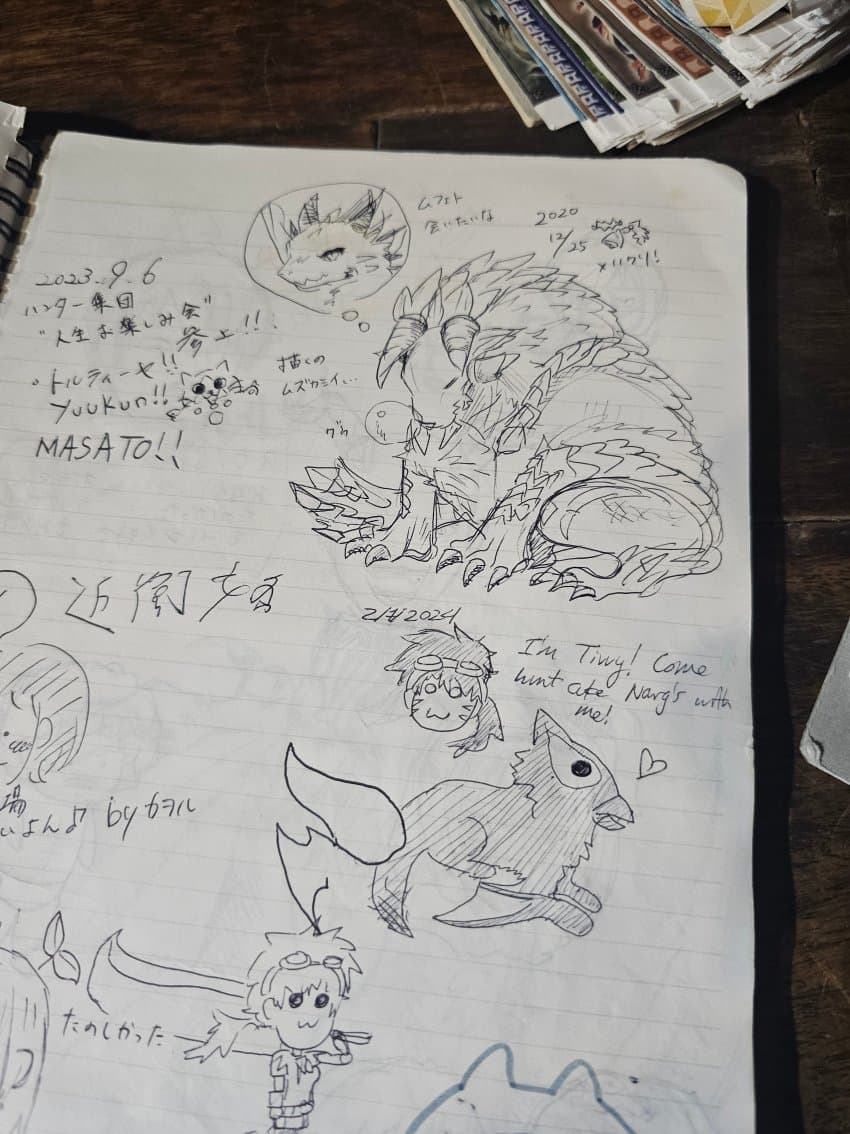 ムフェト
会いたいな
2020
12/25
メリクリ!
2023.9.6
ハンター集団
"人生お楽しみ会"
参上!!!
・トルティーヤ!!
Yuukun!!
MASATO!!
描くの
ムズカシイ...
グゥ
近衛
2024
I'm Tivvy! Come
hunt cute Narg's with
me!
場
いよん♪ by カヲル
たのしかった